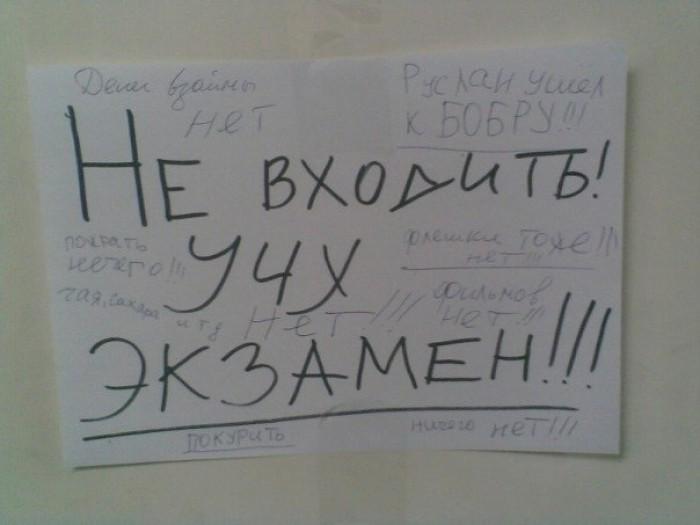 Денег взаймы
нет
Руслан ушёл
к БОБРУ!!!
НЕ ВХОДИТЬ!
пожрать
нечего!!!
УЧУ
флешки тоже!!!
нет!!!
чая, сахара
и тд нет!!!
фильмов
нет!!!
ЭКЗАМЕН!!!
ПОКУРИТЬ
ничего нет!!!